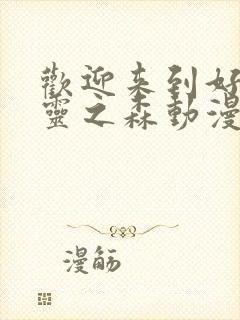 歡迎来到好
靈之森動漫
漫觞